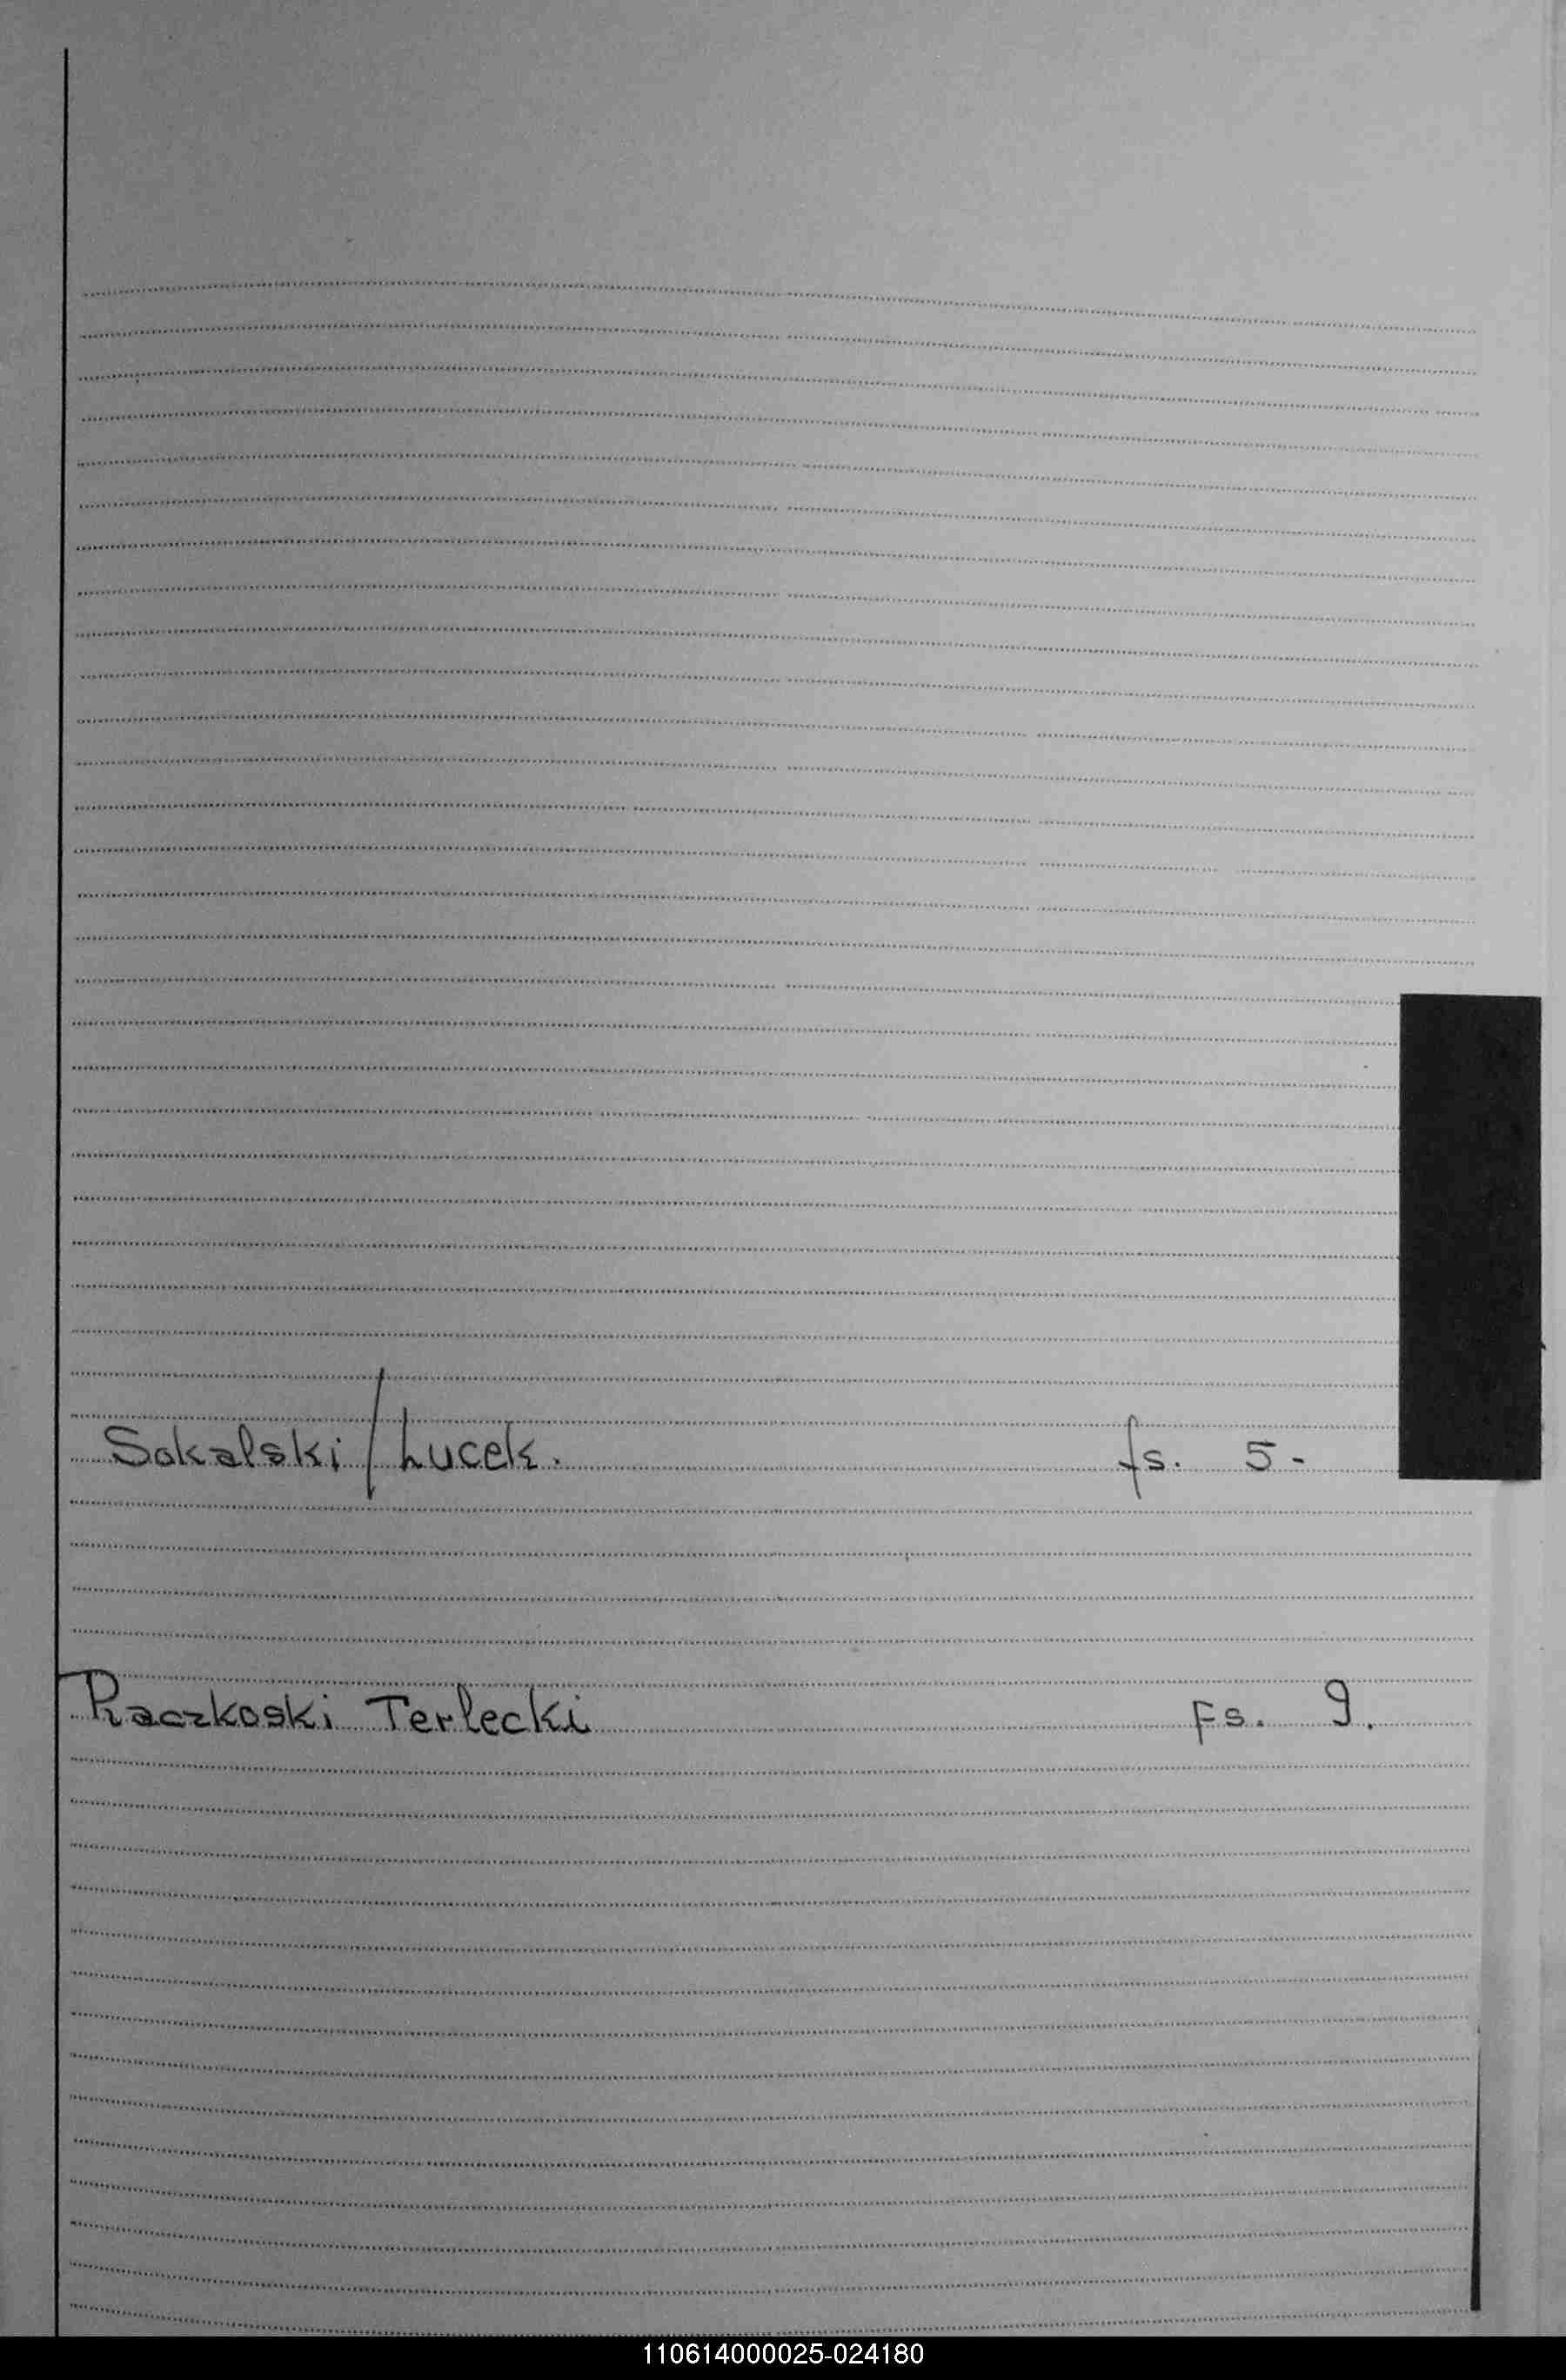 Sokalski / Lucek. fs. 5-
Raczkoski Terlecki Fs. 9.
110614000025-024180